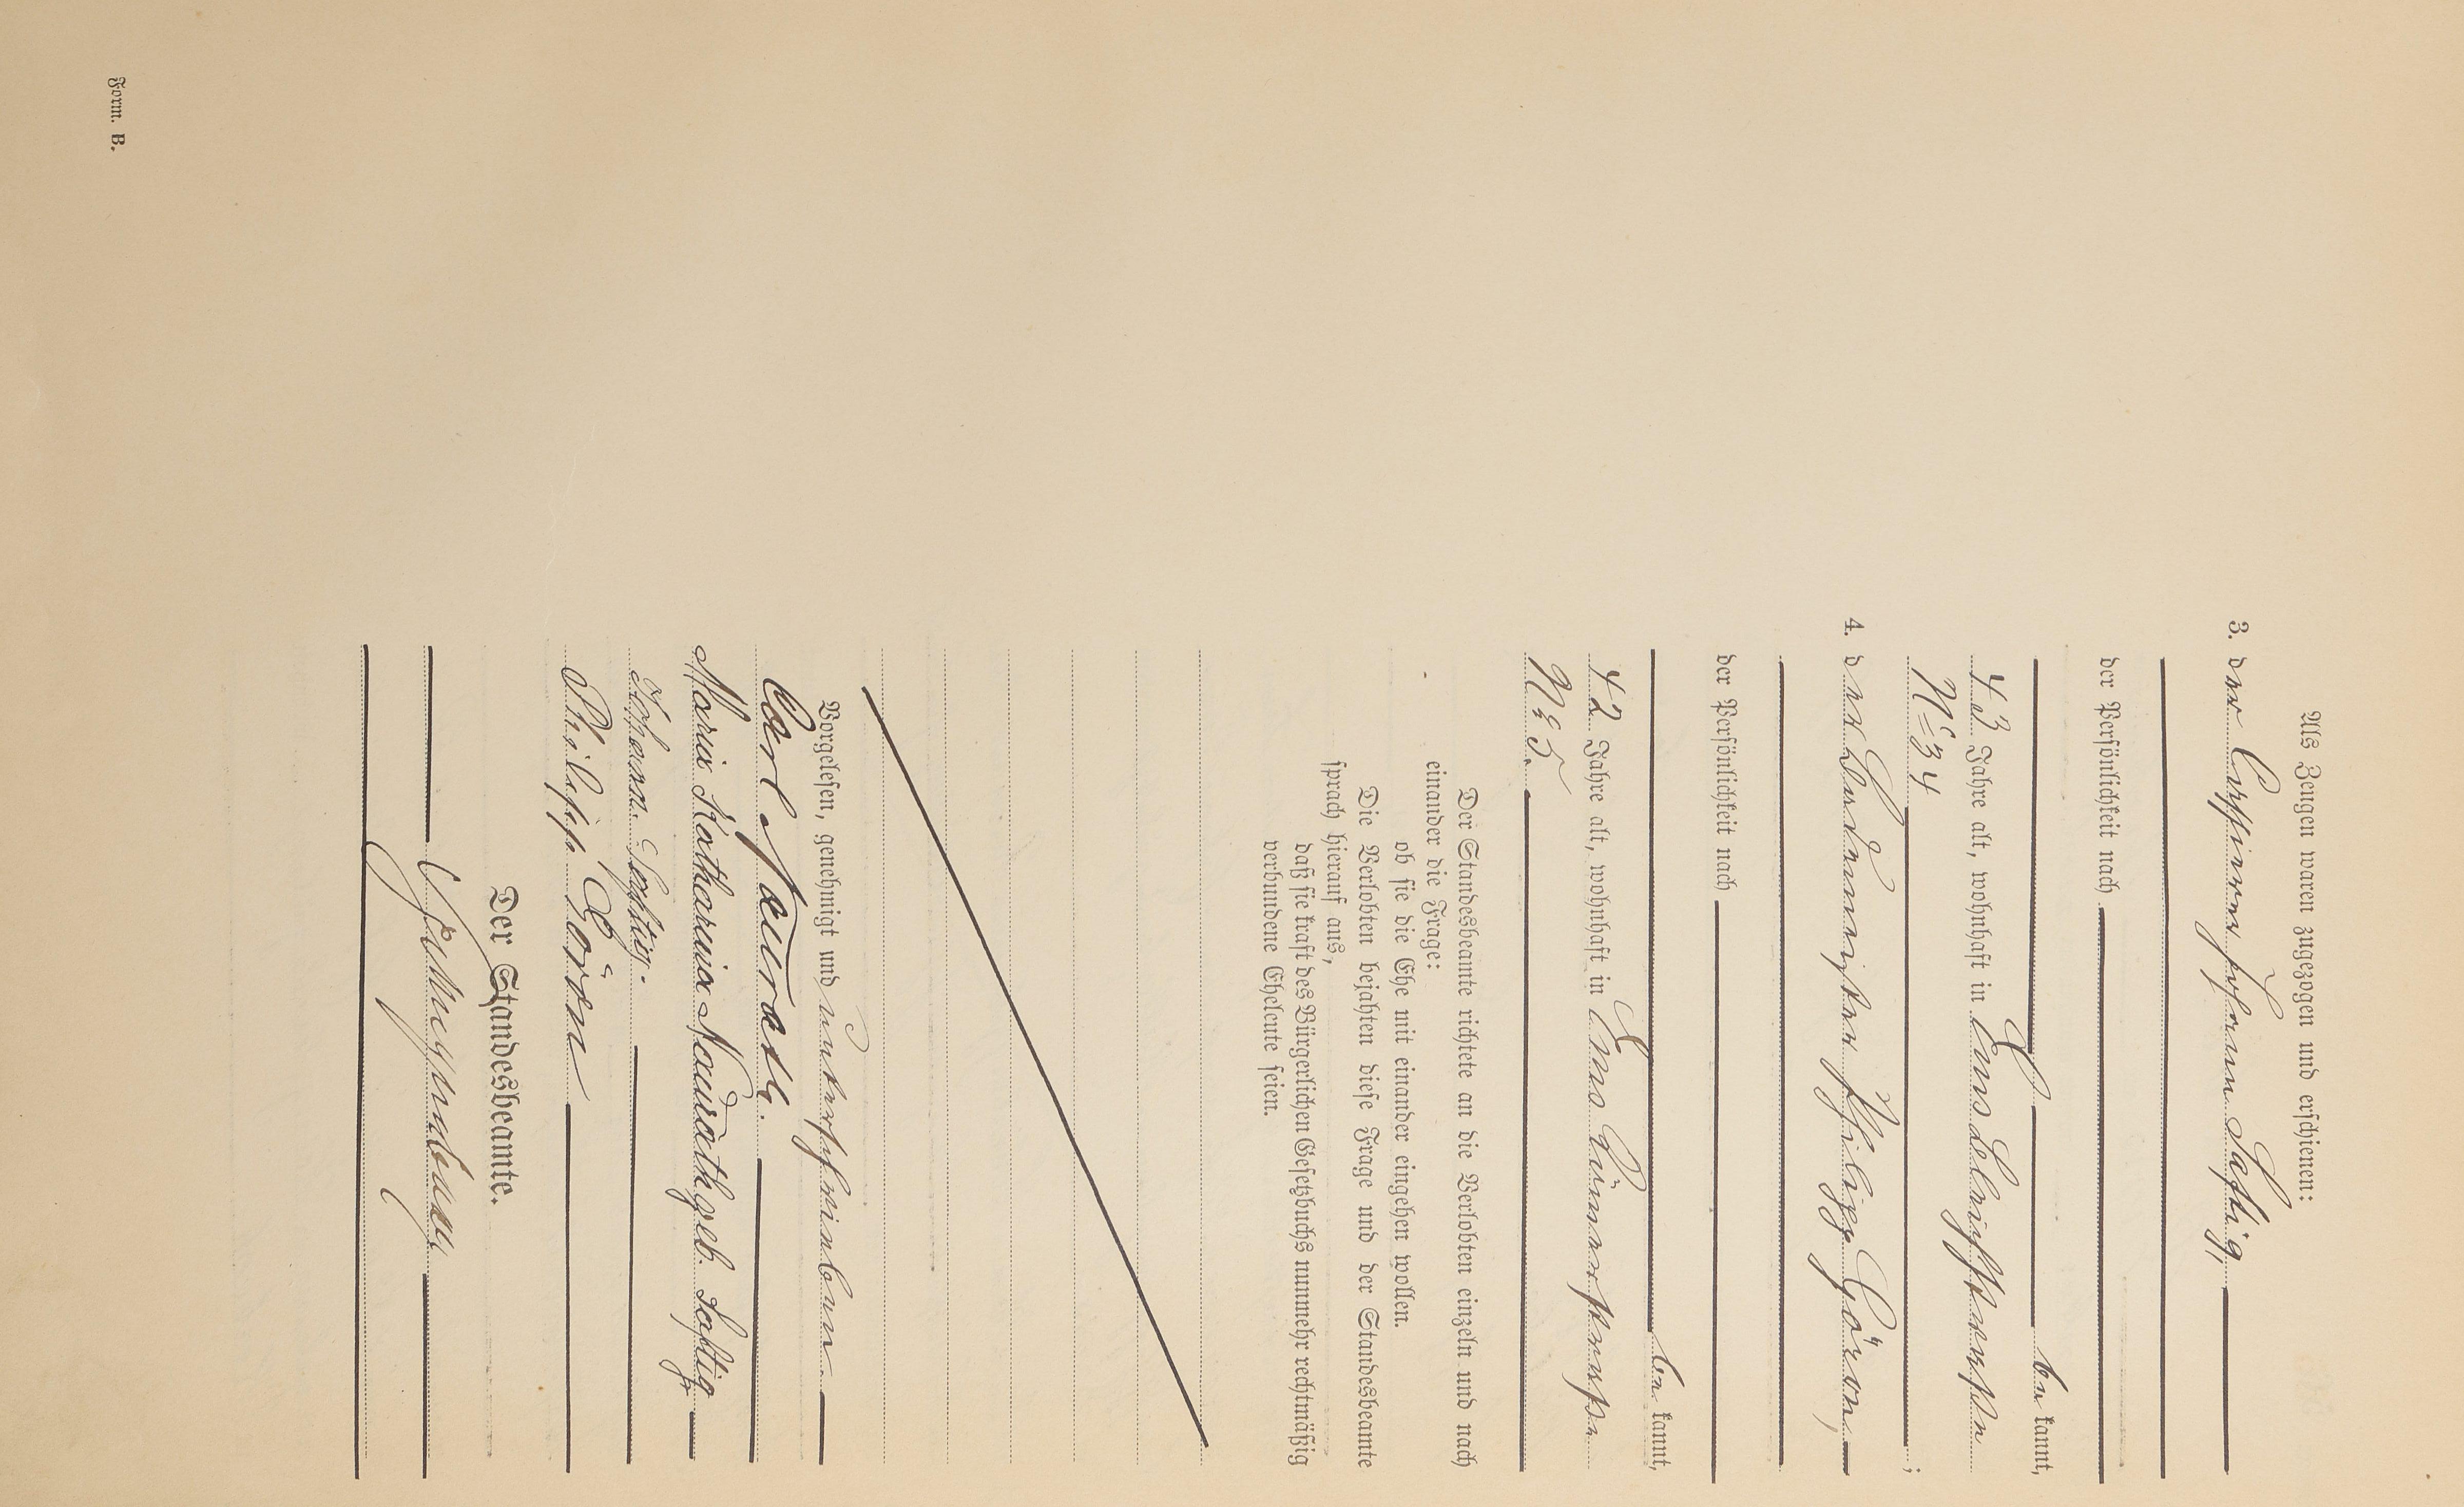 Als Zeugen waren zugezogen und erschienen:
3. der Cassierer Johann Saftig,
der Persönlichkeit nach
be kannt,
43 Jahre alt, wohnhaft in Ems
No 34 ;
4. der Philipp Görden,
der Persönlichkeit nach
be kannt,
42 Jahre alt, wohnhaft in Ems Römerstrasse
No 5.
Der Standesbeamte richtete an die Verlobten einzeln und nach
einander die Frage:
ob sie die Ehe mit einander eingehen wollen.
Die Verlobten bejahten diese Frage und der Standesbeamte
sprach hierauf aus,
daß sie kraft des Bürgerlichen Gesetzbuchs nunmehr rechtmäßig
verbundene Eheleute seien.
Vorgelesen, genehmigt und unterschrieben
Carl Naurath.
Maria Katharina Naurath geb. Saftig
Johann Saftig.
Philipp
Der Standesbeamte.
Form. B.